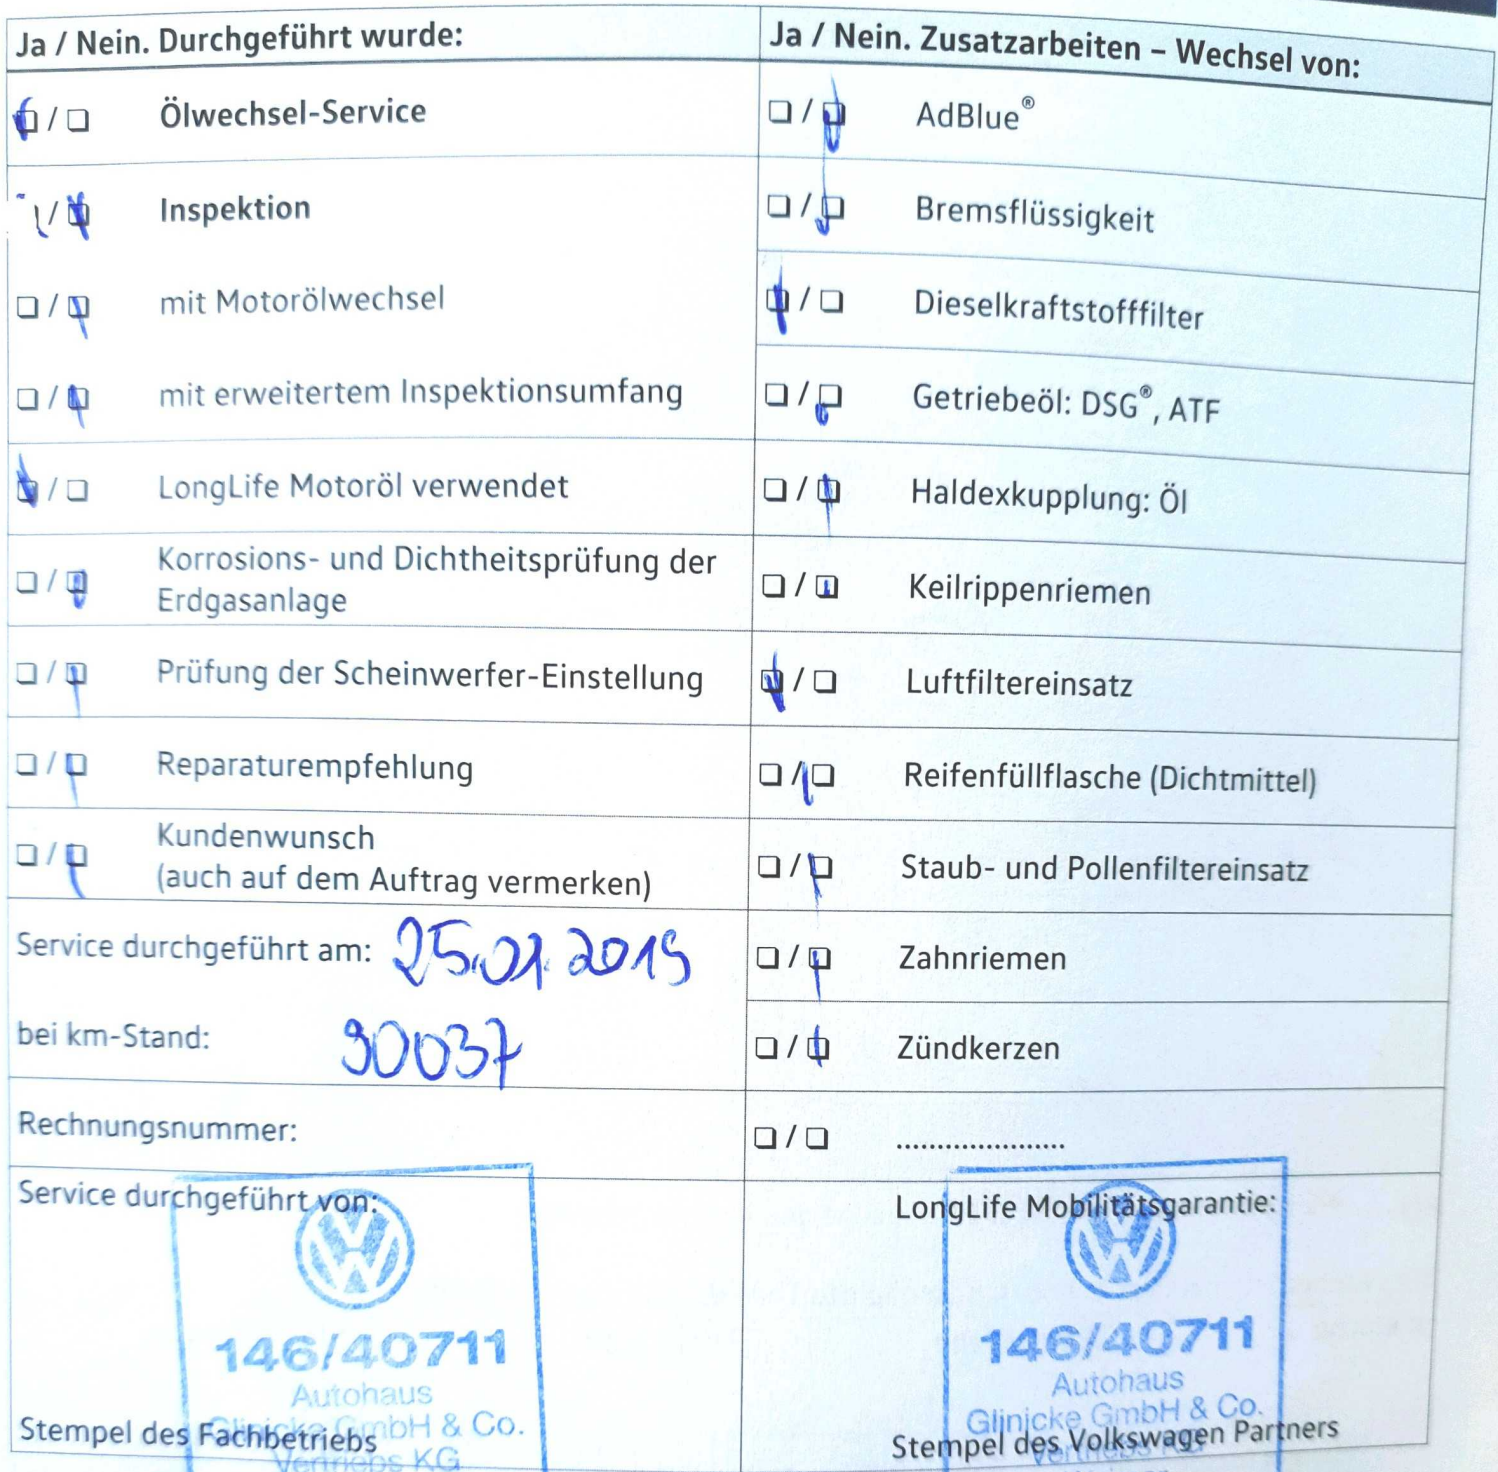 Ja / Nein. Durchgeführt wurde:
Ölwechsel-Service
Inspektion
mit Motorölwechsel
mit erweitertem Inspektionsumfang
LongLife Motoröl verwendet
Korrosions- und Dichtheitsprüfung der
Erdgasanlage
Prüfung der Scheinwerfer-Einstellung
Reparaturempfehlung
Kundenwunsch
(auch auf dem Auftrag vermerken)
Service durchgeführt am: 25.01.2019
bei km-Stand: 90037
Rechnungsnummer:
Service durchgeführt von:
146/40711
Autohaus
Glinicke GmbH & Co.
Stempel des Fachbetriebs
Vertriebs KG
Ja / Nein. Zusatzarbeiten – Wechsel von:
AdBlue®
Bremsflüssigkeit
Dieselkraftstofffilter
Getriebeöl: DSG®, ATF
Haldexkupplung: Öl
Keilrippenriemen
Luftfiltereinsatz
Reifenfüllflasche (Dichtmittel)
Staub- und Pollenfiltereinsatz
Zahnriemen
Zündkerzen
.....................
LongLife Mobilitätsgarantie:
146/40711
Autohaus
Glinicke GmbH & Co.
Stempel des Volkswagen Partners